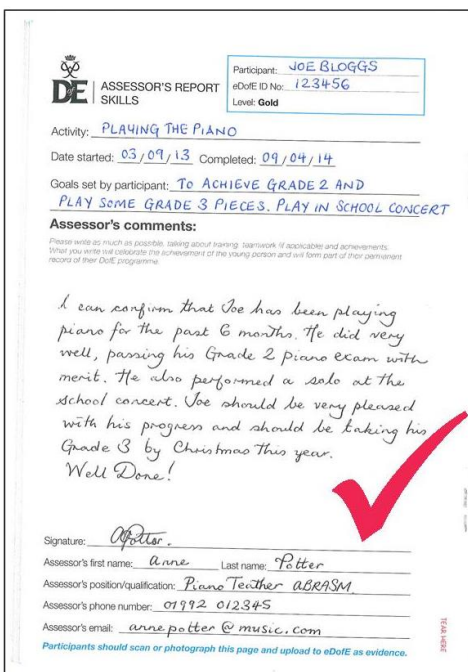 DofE
ASSESSOR'S REPORT
SKILLS
Participant: JOE BLOGGS
eDofE ID No: 123456
Level: Gold
Activity: PLAYING THE PIANO
Date started: 03/09/13 Completed: 09/04/14
Goals set by participant: TO ACHIEVE GRADE 2 AND
PLAY SOME GRADE 3 PIECES. PLAY IN SCHOOL CONCERT
Assessor's comments:
Please write as much as possible, talking about training, teamwork if applicable and achievements.
What you write will celebrate the achievement of the young person and will form part of their permanent
record of their DofE programme.
I can confirm that Joe has been playing
piano for the past 6 months. He did very
well, passing his Grade 2 piano exam with
merit. He also performed a solo at the
school concert. Joe should be very pleased
with his progress and should be taking his
Grade 3 by Christmas this year.
Well Done!
Signature: APotter.
Assessor's first name: Anne Last name: Potter
Assessor's position/qualification: Piano Teather ABRASM
Assessor's phone number: 01992 012345
Assessor's email: annepotter@music.com
Participants should scan or photograph this page and upload to eDofE as evidence.
TEAR HERE